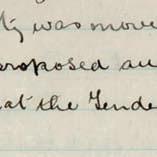 ty was move
proposed au
at the Tende